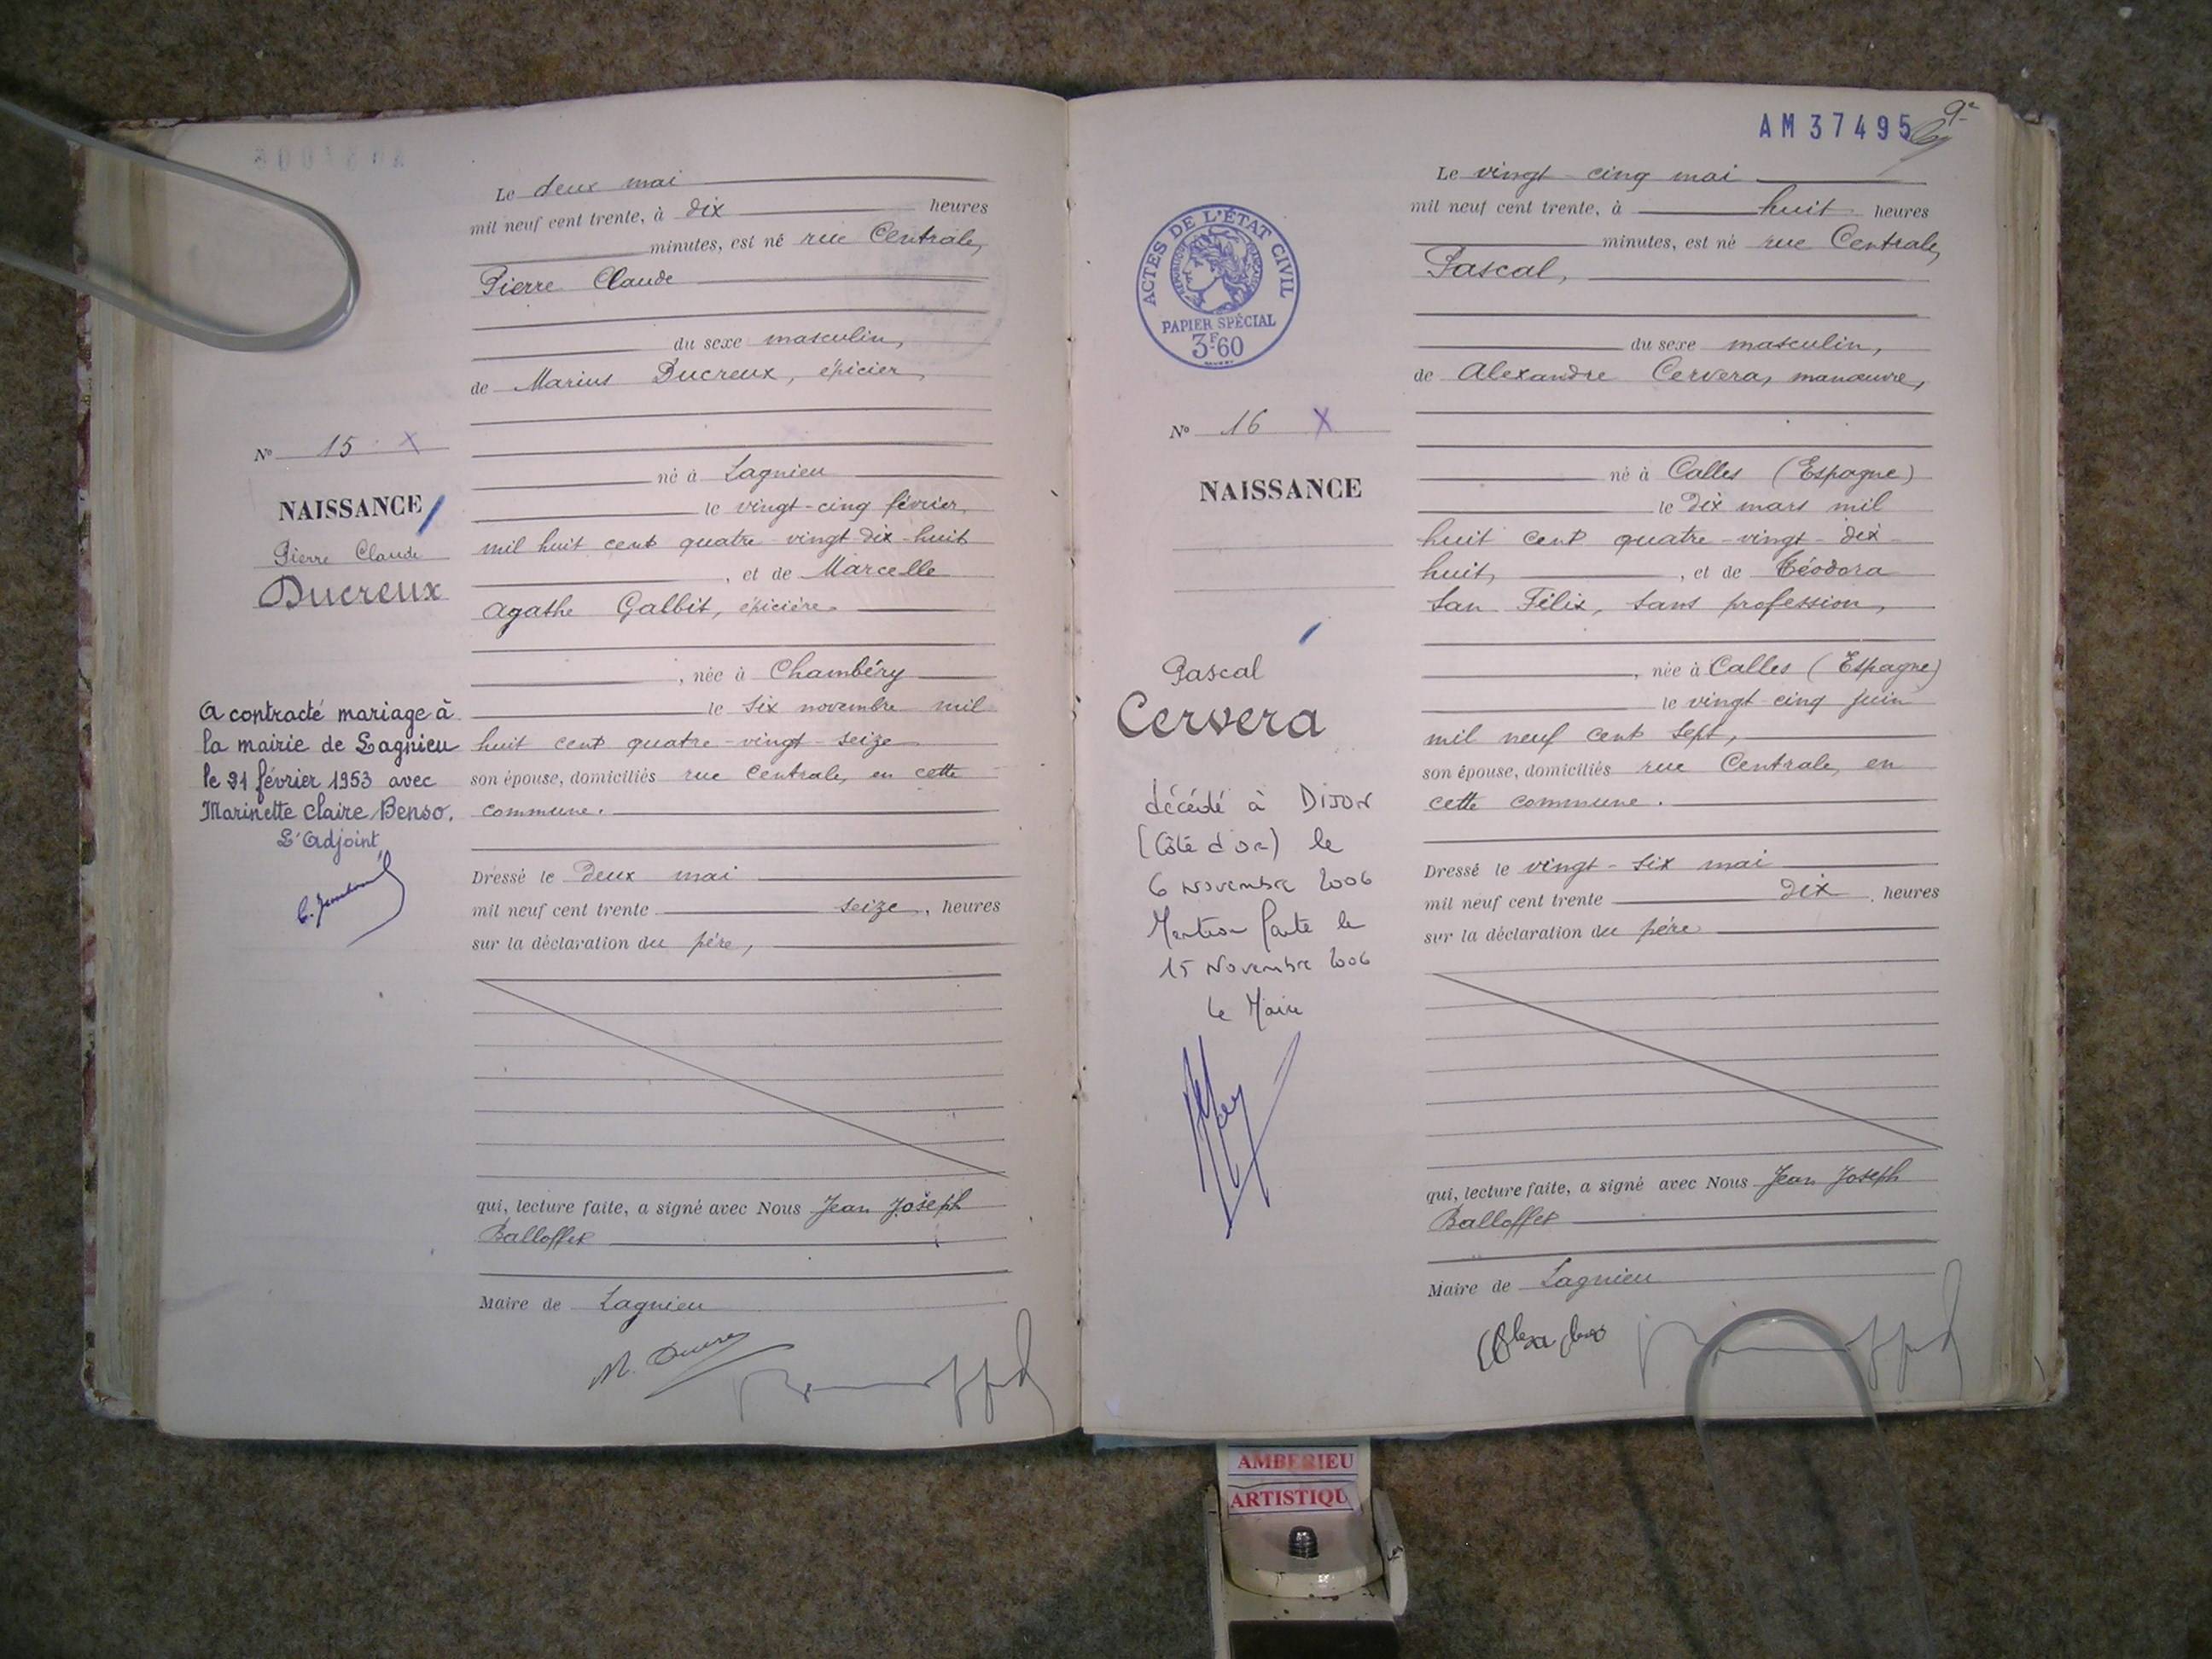 Le deux mai
mil neuf cent trente, à dix heures
minutes, est né rue Centrale,
Pierre Claude
du sexe masculin,
de Marius Ducreux, épicier,
né à Lagnieu
le vingt-cinq février
mil huit cent quatre-vingt-dix-huit
, et de Marcelle
Agathe Galbit, épicière
, née à Chambéry
le six novembre mil
huit cent quatre-vingt-seize
son épouse, domiciliés rue Centrale, en cette
commune.
Dressé le deux mai
mil neuf cent trente seize, heures
sur la déclaration du père,
qui, lecture faite, a signé avec Nous Jean Joseph
Balloffet
Maire de Lagnieu
No 15 X
NAISSANCE
Pierre Claude
Ducreux
A contracté mariage à
la mairie de Lagnieu
le 21 février 1953 avec
Marinette Claire Benso.
L'Adjoint
AM 37495
9e
ACTES DE L'ÉTAT CIVIL
PAPIER SPÉCIAL
3F60
No 16 X
NAISSANCE
Pascal
Cervera
décédé à DIJON
(Côte d'or) le
6 Novembre 2006
Mention faite le
15 Novembre 2006
Le Maire
Le vingt-cinq mai
mil neuf cent trente, à huit heures
minutes, est né rue Centrale,
Pascal,
du sexe masculin,
de Alexandre Cervera, manœuvre,
né à Calles (Espagne)
le dix mars mil
huit cent quatre-vingt-dix-
huit, , et de Téodora
San Félix, sans profession,
, née à Calles (Espagne)
le vingt-cinq juin
mil neuf cent sept,
son épouse, domiciliés rue Centrale, en
cette commune.
Dressé le vingt-six mai
mil neuf cent trente dix, heures
sur la déclaration du père
qui, lecture faite, a signé avec Nous Jean Joseph
Balloffet
Maire de Lagnieu
AMBERIEU
ARTISTIQU